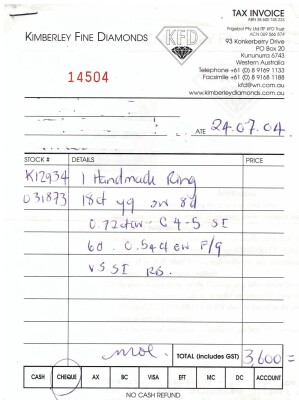 TAX INVOICE
KIMBERLEY FINE DIAMONDS
KFD
93 Konkerberry Drive
PO Box 20
Kununurra 6743
Western Australia
Telephone +61 (0) 8 9169 1133
Facsimile +61 (0) 8 9168 1188
kfd@wn.com.au
www.kimberleydiamonds.com.au
14504
ATE 24.07.04
STOCK # DETAILS PRICE
K12934 1 Handmade Ring
031873 18ct yg 8d
0.72ctw C4-5 SI
6d 0.54ctw F/G
VS SI RB.
TOTAL (includes GST) 3600=
CASH CHEQUE AX BC VISA EFT MC DC ACCOUNT
NO CASH REFUND